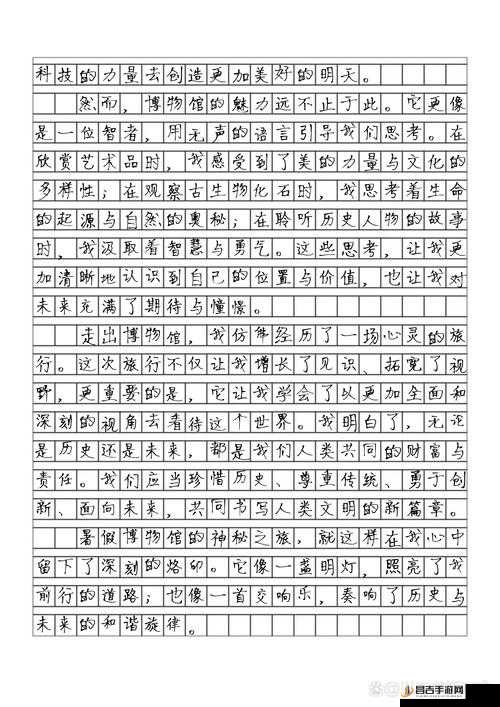 科技的力量去创造更加美好的明天。
然而，博物馆的魅力远不止于此。它更像
是一位智者，用无声的语言引导我们思考。在
欣赏艺术品时，我感受到了美的力量与文化的
多样性；在观察古生物化石时，我思考着生命
的起源与自然的奥秘；在聆听历史人物的故事
时，我汲取着智慧与勇气。这些思考，让我更
加清晰地认识到自己的位置与价值，也让我对
未来充满了期待与憧憬。
走出博物馆，我仿佛经历了一场心灵的旅
行。这次旅行不仅让我增长了见识、拓宽了视
野，更重要的是，它让我学会了以更加全面和
深刻的视角去看待这个世界。我明白了，无论
是历史还是未来，都是我们人类共同的财富与
责任。我们应当珍惜历史、尊重传统、勇于创
新、面向未来，共同书写人类文明的新篇章。
暑假博物馆的神秘之旅，就这样在我心中
留下了深刻的烙印。它像一盏明灯，照亮了我
前行的道路；也像一首交响乐，奏响了历史与
未来的和谐旋律。
昌吉手游网